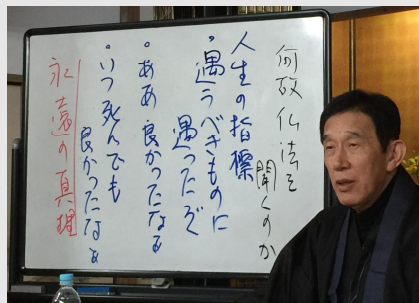 何故仏法を
聞くのか
人生の指標
・遇うべきものに
遇ったぞ
・ああ良かったなぁ
・いつ死んでも
良かったなぁ
永遠の真理